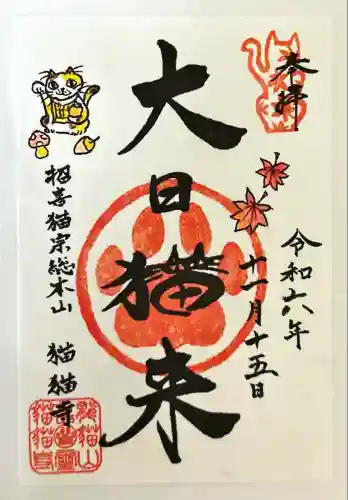 奉拝
令和六年
十一月十五日
大日猫来
招喜猫宗総本山 猫猫寺